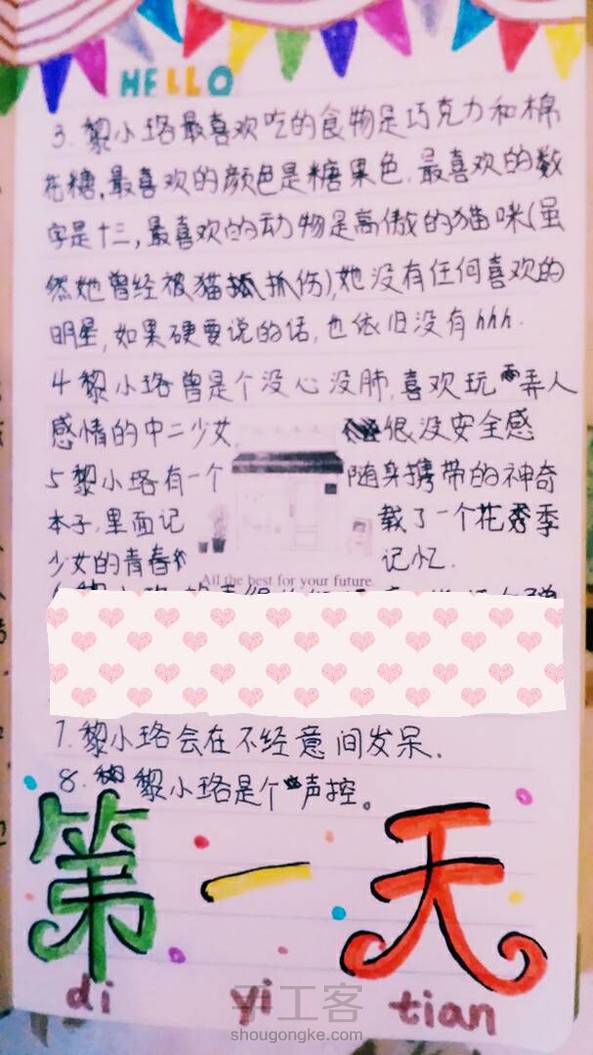 HELLO
3.黎小珞最喜欢吃的食物是巧克力和棉
花糖,最喜欢的颜色是糖果色.最喜欢的数
字是十三,最喜欢的动物是高傲的猫咪(虽
然她曾经被猫抓伤),她没有任何喜欢的
明星,如果硬要说的话,也依旧没有hhh.
4 黎小珞曾是个没心没肺,喜欢玩弄人
感情的中二少女 很没安全感
5 黎小珞有一个 随身携带的神奇
本子,里面记 载了一个花季
少女的青春 记忆.
All the best for your future.
7.黎小珞会在不经意间发呆.
8.黎小珞是个声控。
第一天
di yi tian
手工客
shougongke.com